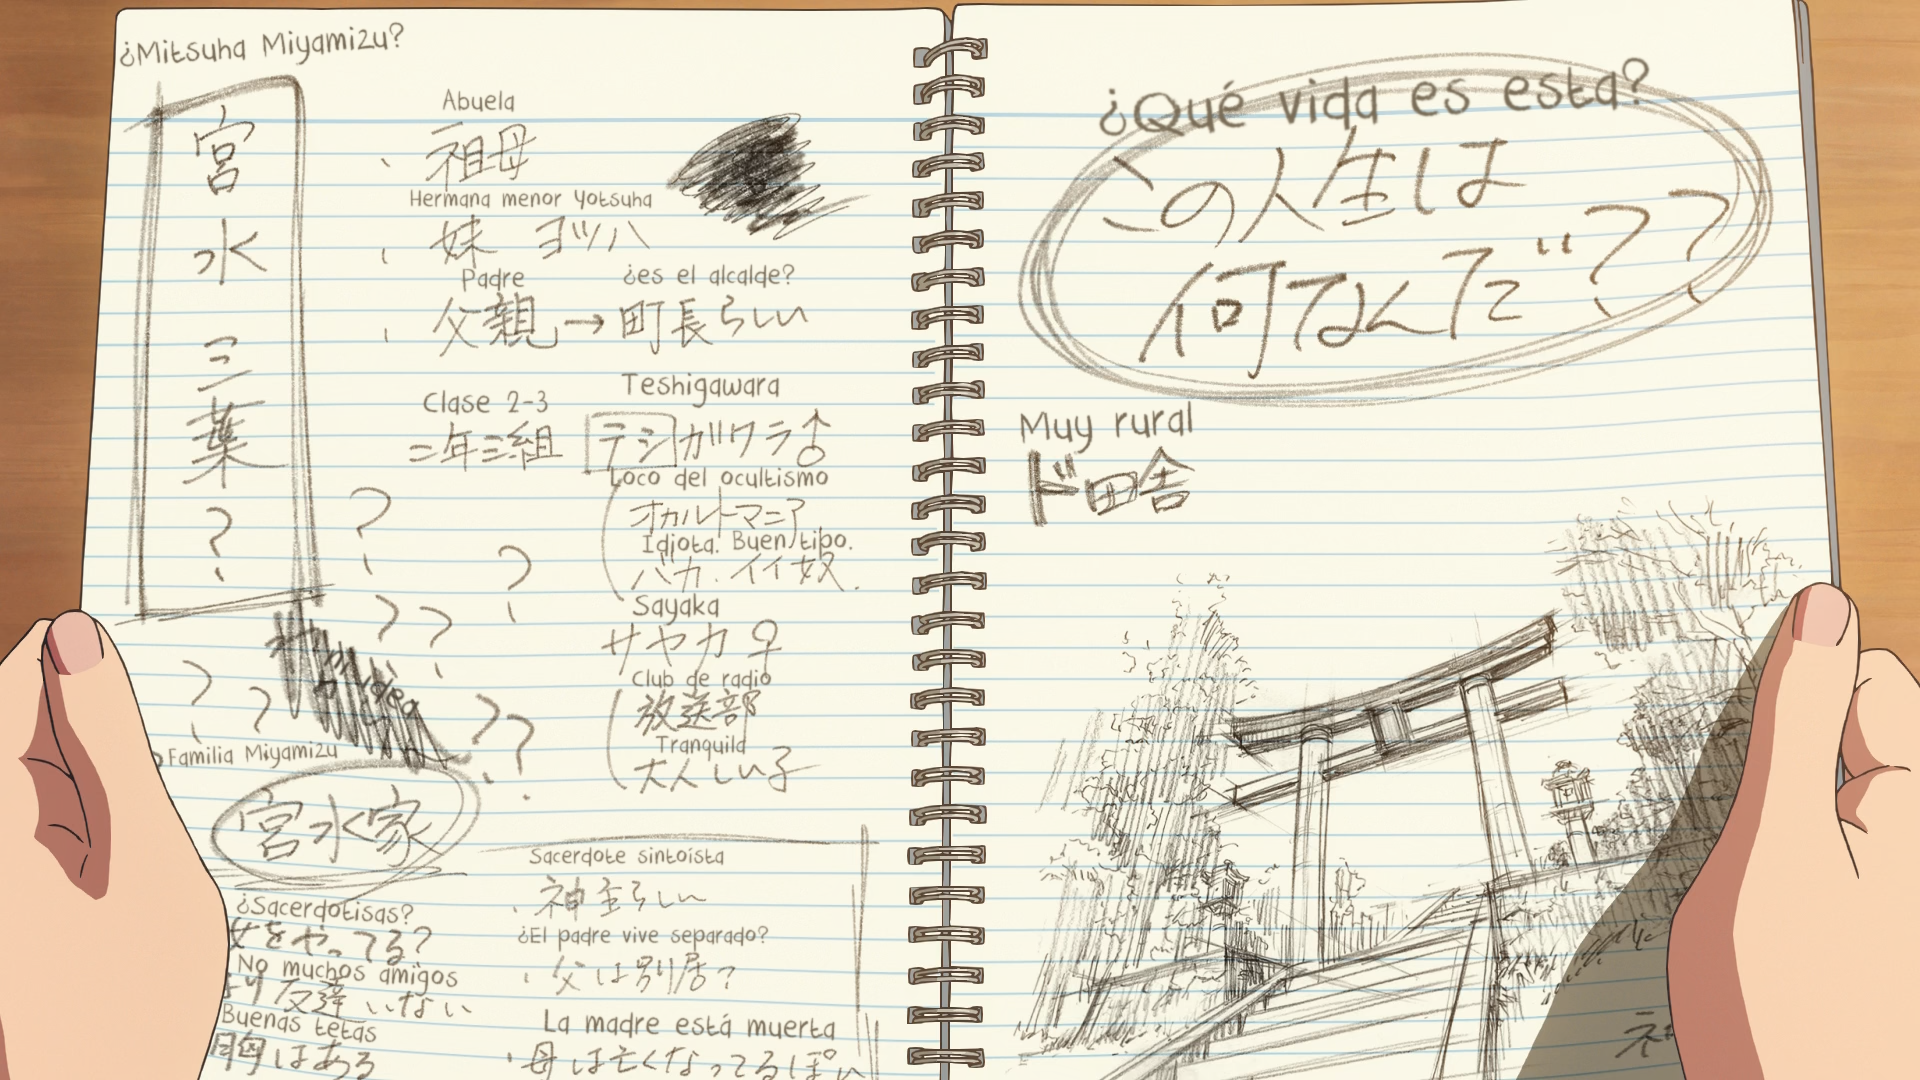 ¿Mitsuha Miyamizu?
宮水三葉?
Abuela
、祖母
Hermana menor Yotsuha
、妹 ヨツハ
Padre ¿es el alcalde?
、父親→町長らしい
Clase 2-3
二年三組
Teshigawara
テシガワラ♂
Loco del ocultismo
オカルトマニア
Idiota. Buen tipo.
バカ.イイ奴.
Sayaka
サヤカ♀
Club de radio
放送部
Tranquila
大人しい子
? ? ? ? ? ? ? ?
Familia Miyamizu
宮水家
¿Sacerdotisas?
女をやってる?
No muchos amigos
友達いない
Buenas tetas
胸はある
Sacerdote sintoísta
.神主らしい
¿El padre vive separado?
.父は別居?
La madre está muerta
.母は亡くなってるぽい
¿Qué vida es esta?
この人生は
何なんだ??
Muy rural
ド田舎